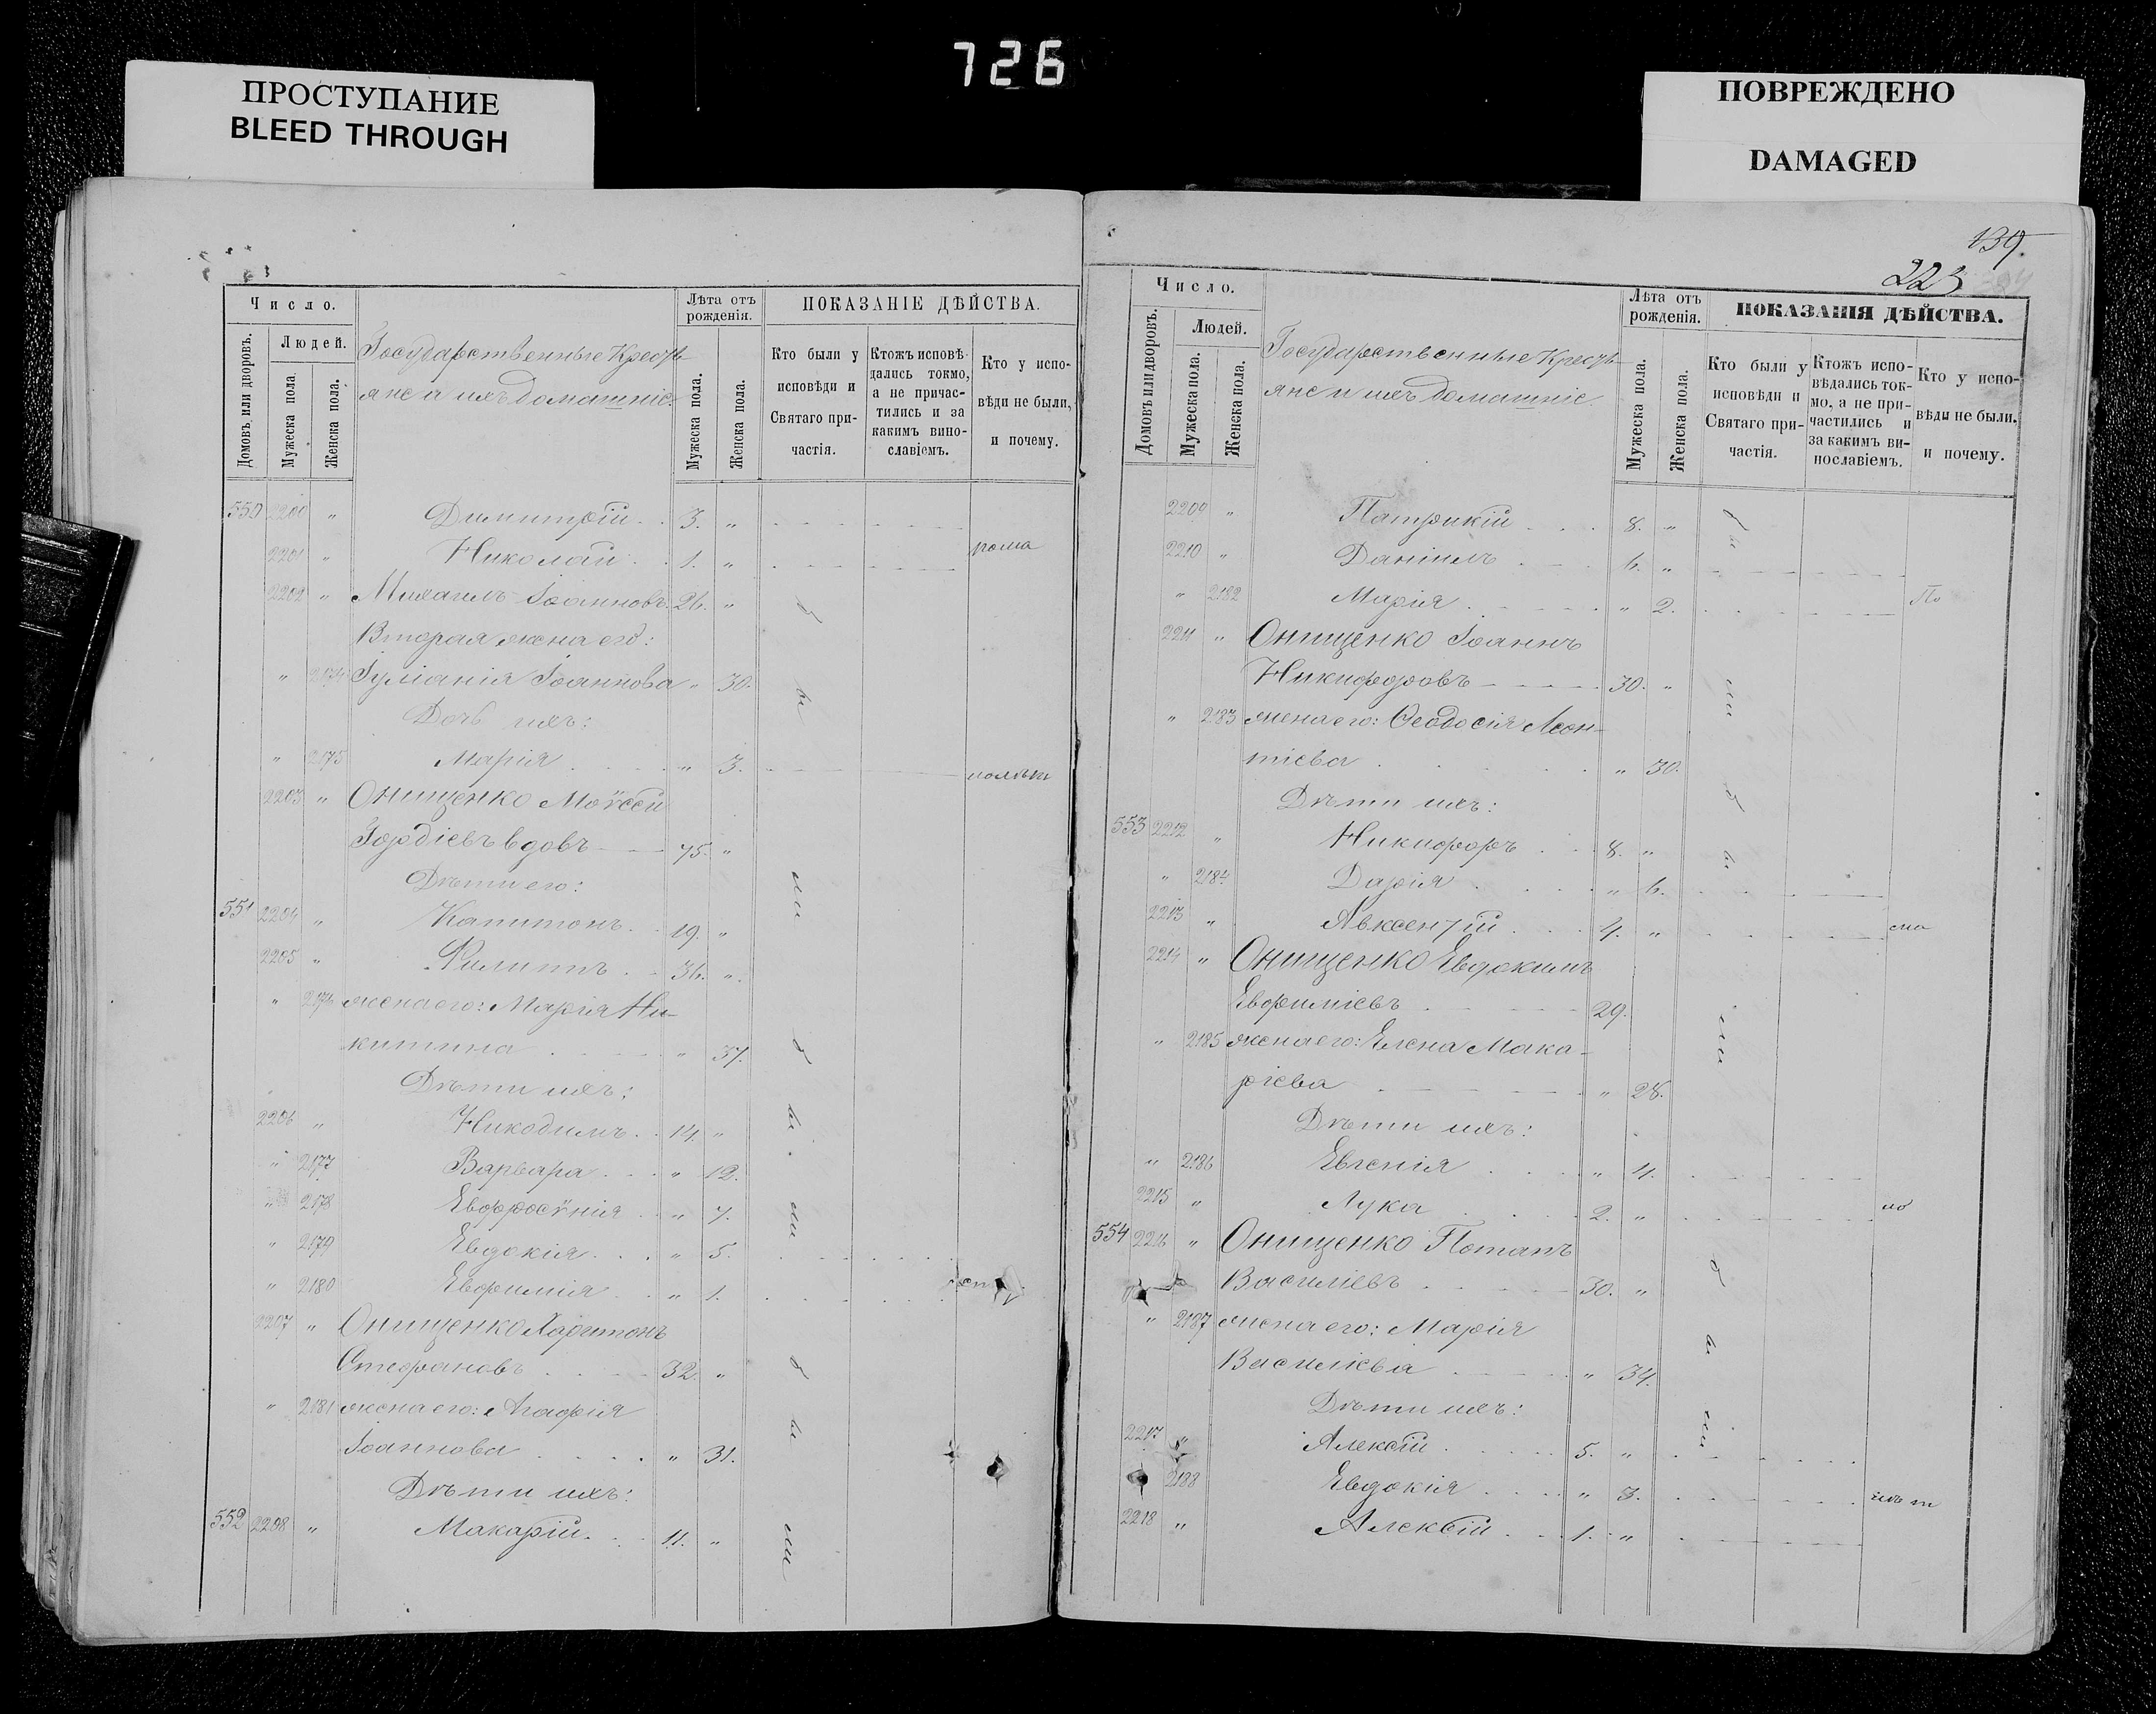 726
ПРОСТУПАНИЕ
BLEED THROUGH
ПОВРЕЖДЕНО
DAMAGED
Число.
Людей.
Домовъ, или дворовъ.
Мужеска пола.
Женска пола.
Государственные Кресть-
яне и ихъ домашніе.
Лѣта отъ рожденія.
Мужеска пола.
Женска пола.
ПОКАЗАНІЕ ДѢЙСТВА.
Кто были у исповѣди и Святаго при-частія.
Ктожъ исповѣ-дались токмо, а не причас-тились и за какимъ вино-славіемъ.
Кто у испо-вѣди не были, и почему.
550 2200 " Димитрій 3. "
2201 " Николай 1. "
2202 " Михаилъ Іоанновъ 26. "
Вторая жена его:
" 2174 Іуліанія Іоаннова " 30.
Дочь ихъ:
" 2175 Марія " 3.
2203 " Онищенко Моѵсей
Гордіевъ вдовъ 75. "
Дѣти его:
551 2204 " Капитонъ 19. "
2205 " Филиппъ 36. "
" 2176 жена его: Марія Ни-
китина " 37.
Дѣти ихъ:
2206 " Никодимъ 14. "
" 2177 Варвара " 12.
" 2178 Евфросѵнія " 7.
" 2179 Евдокія " 5.
" 2180 Евфимія " 1.
2207 " Онищенко Харитонъ
Стефановъ 32. "
" 2181 жена его: Агафія
Іоаннова " 31.
Дѣти ихъ:
552 2208 " Макарій 11. "
139.
223
Число.
Людей.
Домовъ или дворовъ.
Мужеска пола.
Женска пола.
Государственные Кресть-
яне и ихъ домашніе.
Лѣта отъ рожденія.
Мужеска пола.
Женска пола.
ПОКАЗАНІЯ ДѢЙСТВА.
Кто были у исповѣди и Святаго при-частія.
Ктожъ испо-вѣдались ток-мо, а не при-частились и за какимъ ви-нославіемъ.
Кто у испо-вѣди не были. и почему.
2209 " Патрикій 8. "
2210 " Даніилъ 6. "
" 2182 Марія " 2.
2211 " Онищенко Іоаннъ
Никифоровъ 30. "
" 2183 жена его: Ѳеодосія Леон-
тіева " 30.
Дѣти ихъ:
553 2212 " Никифоръ 8. "
" 2184 Дарія " 6.
2213 " Авксентій 4. "
2214 " Онищенко Евдокимъ
Евфиміевъ 29.
" 2185 жена его: Елена Мака-
ріева " 28.
Дѣти ихъ:
" 2186 Евгенія " 4.
2215 " Лука 2. "
554 2216 " Онищенко Потапъ
Василіевъ 30. "
" 2187 жена его: Марія
Василіева " 34.
Дѣти ихъ:
2217 " Алексій 5. "
2188 Евдокія " 3.
2218 " Алексій 1. "